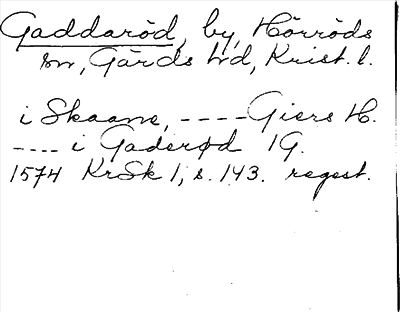 Gaddaröd, by, Hörröds
sn, Gärds hd, Krist. l.
i Skaane, ---- Giers H.
---- i Gaderød 1G.
1574 KrSk 1, s. 143. regest.